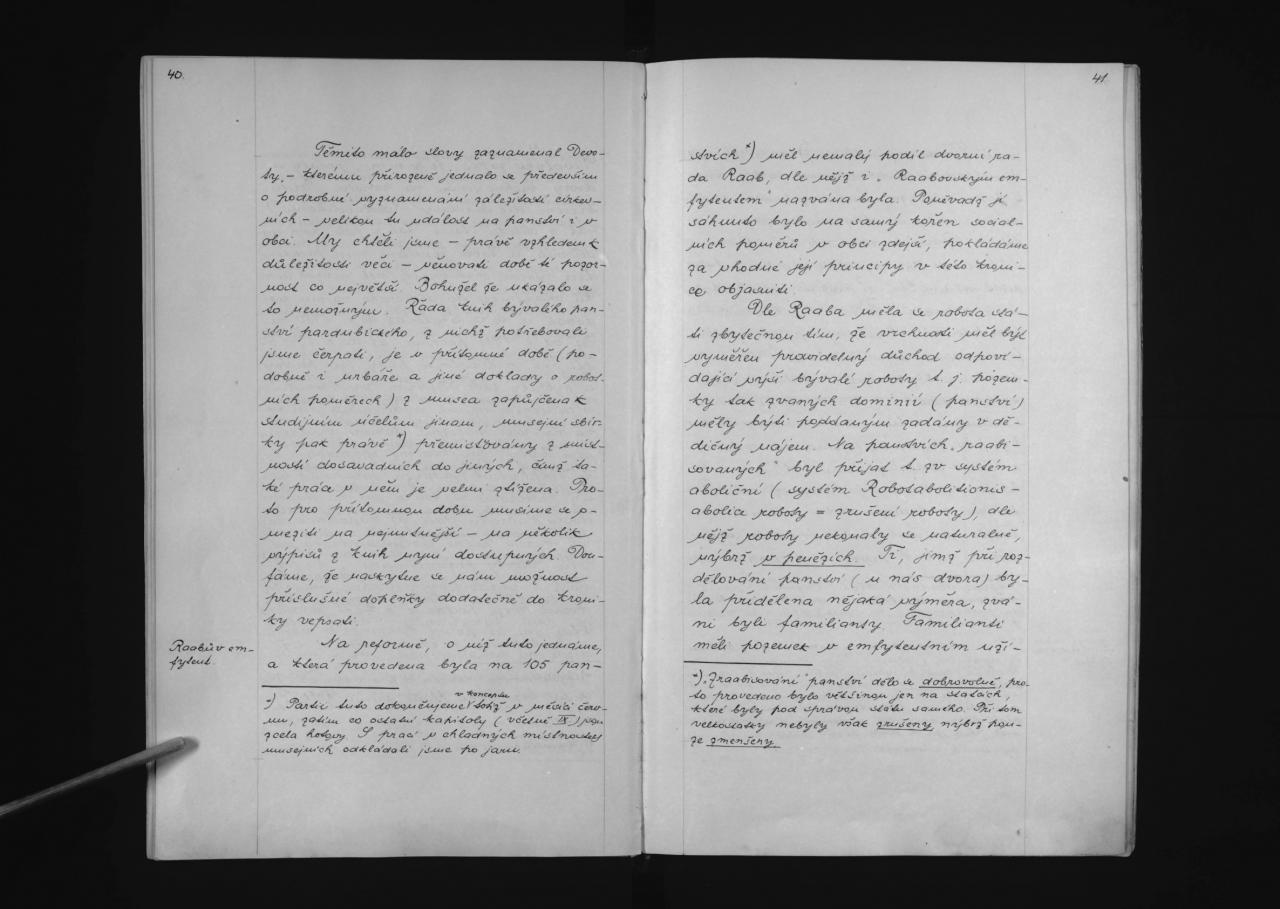 40.
Těmito málo slovy zaznamenal Devo-
ty, - kterému přirozeně jednalo se především
o podrobné vyznamenání záležitostí církev-
ních - velikou tu událost na panství i v
obci. My chtěli jsme - právě vzhledem k
důležitosti věci - věnovati době té pozor-
nost co největší. Bohužel že ukázalo se
to nemožným. Řada knih bývalého pan-
ství pardubického, z nichž potřebovali
jsme čerpati, je v přítomné době (po-
dobně i urbáře a jiné doklady o robot-
ních poměrech) z musea zapůjčena k
studijním účelům jinam, musejní sbír-
ky pak právě *) přemisťovány z míst-
ností dosavadních do jiných, čímž ta-
ké práce v něm je velmi ztížena. Pro-
to pro přítomnou dobu musíme se o-
meziti na nejnutnější - na několik
výpisů z knih nyní dostupných. Dou-
fáme, že naskytne se nám možnost
příslušné doplňky dodatečně do kroni-
ky vepsati.
Raabův em-
fyteut.
Na reformě, o níž tuto jednáme,
a která provedena byla na 105 pan-
*) Partii tuto dokončujeme v konceptu totiž v měsíci červ-
nu, zatím co ostatní kapitoly (včetně IX) jsou
zcela hotovy. S prací v chladných místnostech
musejních odkládali jsme po jaru.
41.
stvích *) měl nemalý podíl dvorní ra-
da Raab, dle nějž i „Raabovským em-
fyteutem" nazvána byla. Poněvadž jí
sáhnuto bylo na samý kořen sociál-
ních poměrů v obci zdejší, pokládáme
za vhodné její principy v této kroni-
ce objasniti.
Dle Raaba měla se robota stá-
ti zbytečnou tím, že vrchnosti měl být
vyměřen pravidelný důchod odpoví-
dající výši bývalé roboty t. j. pozem-
ky tak zvaných dominií (panství)
měly býti poddaným zadány v dě-
dičný nájem. Na panstvích „raabi-
sovaných" byl přijat t. zv systém
aboliční (systém Robotabolitionis -
abolice roboty = zrušení roboty), dle
nějž roboty nekonaly se naturalně,
nýbrž v penězích. Ti, jimž při roz-
dělování panství (u nás dvora) by-
la přidělena nějaká výměra, zvá-
ni byli familianty. Familianti
měli pozemek v emfyteutním uží-
*) „Zraabisování" panství dělo se dobrovolně, pro-
to provedeno bylo většinou jen na statcích,
které byly pod správou státu samého. Při tom
velkostatky nebyly však zrušeny nýbrž pou-
ze zmenšeny.